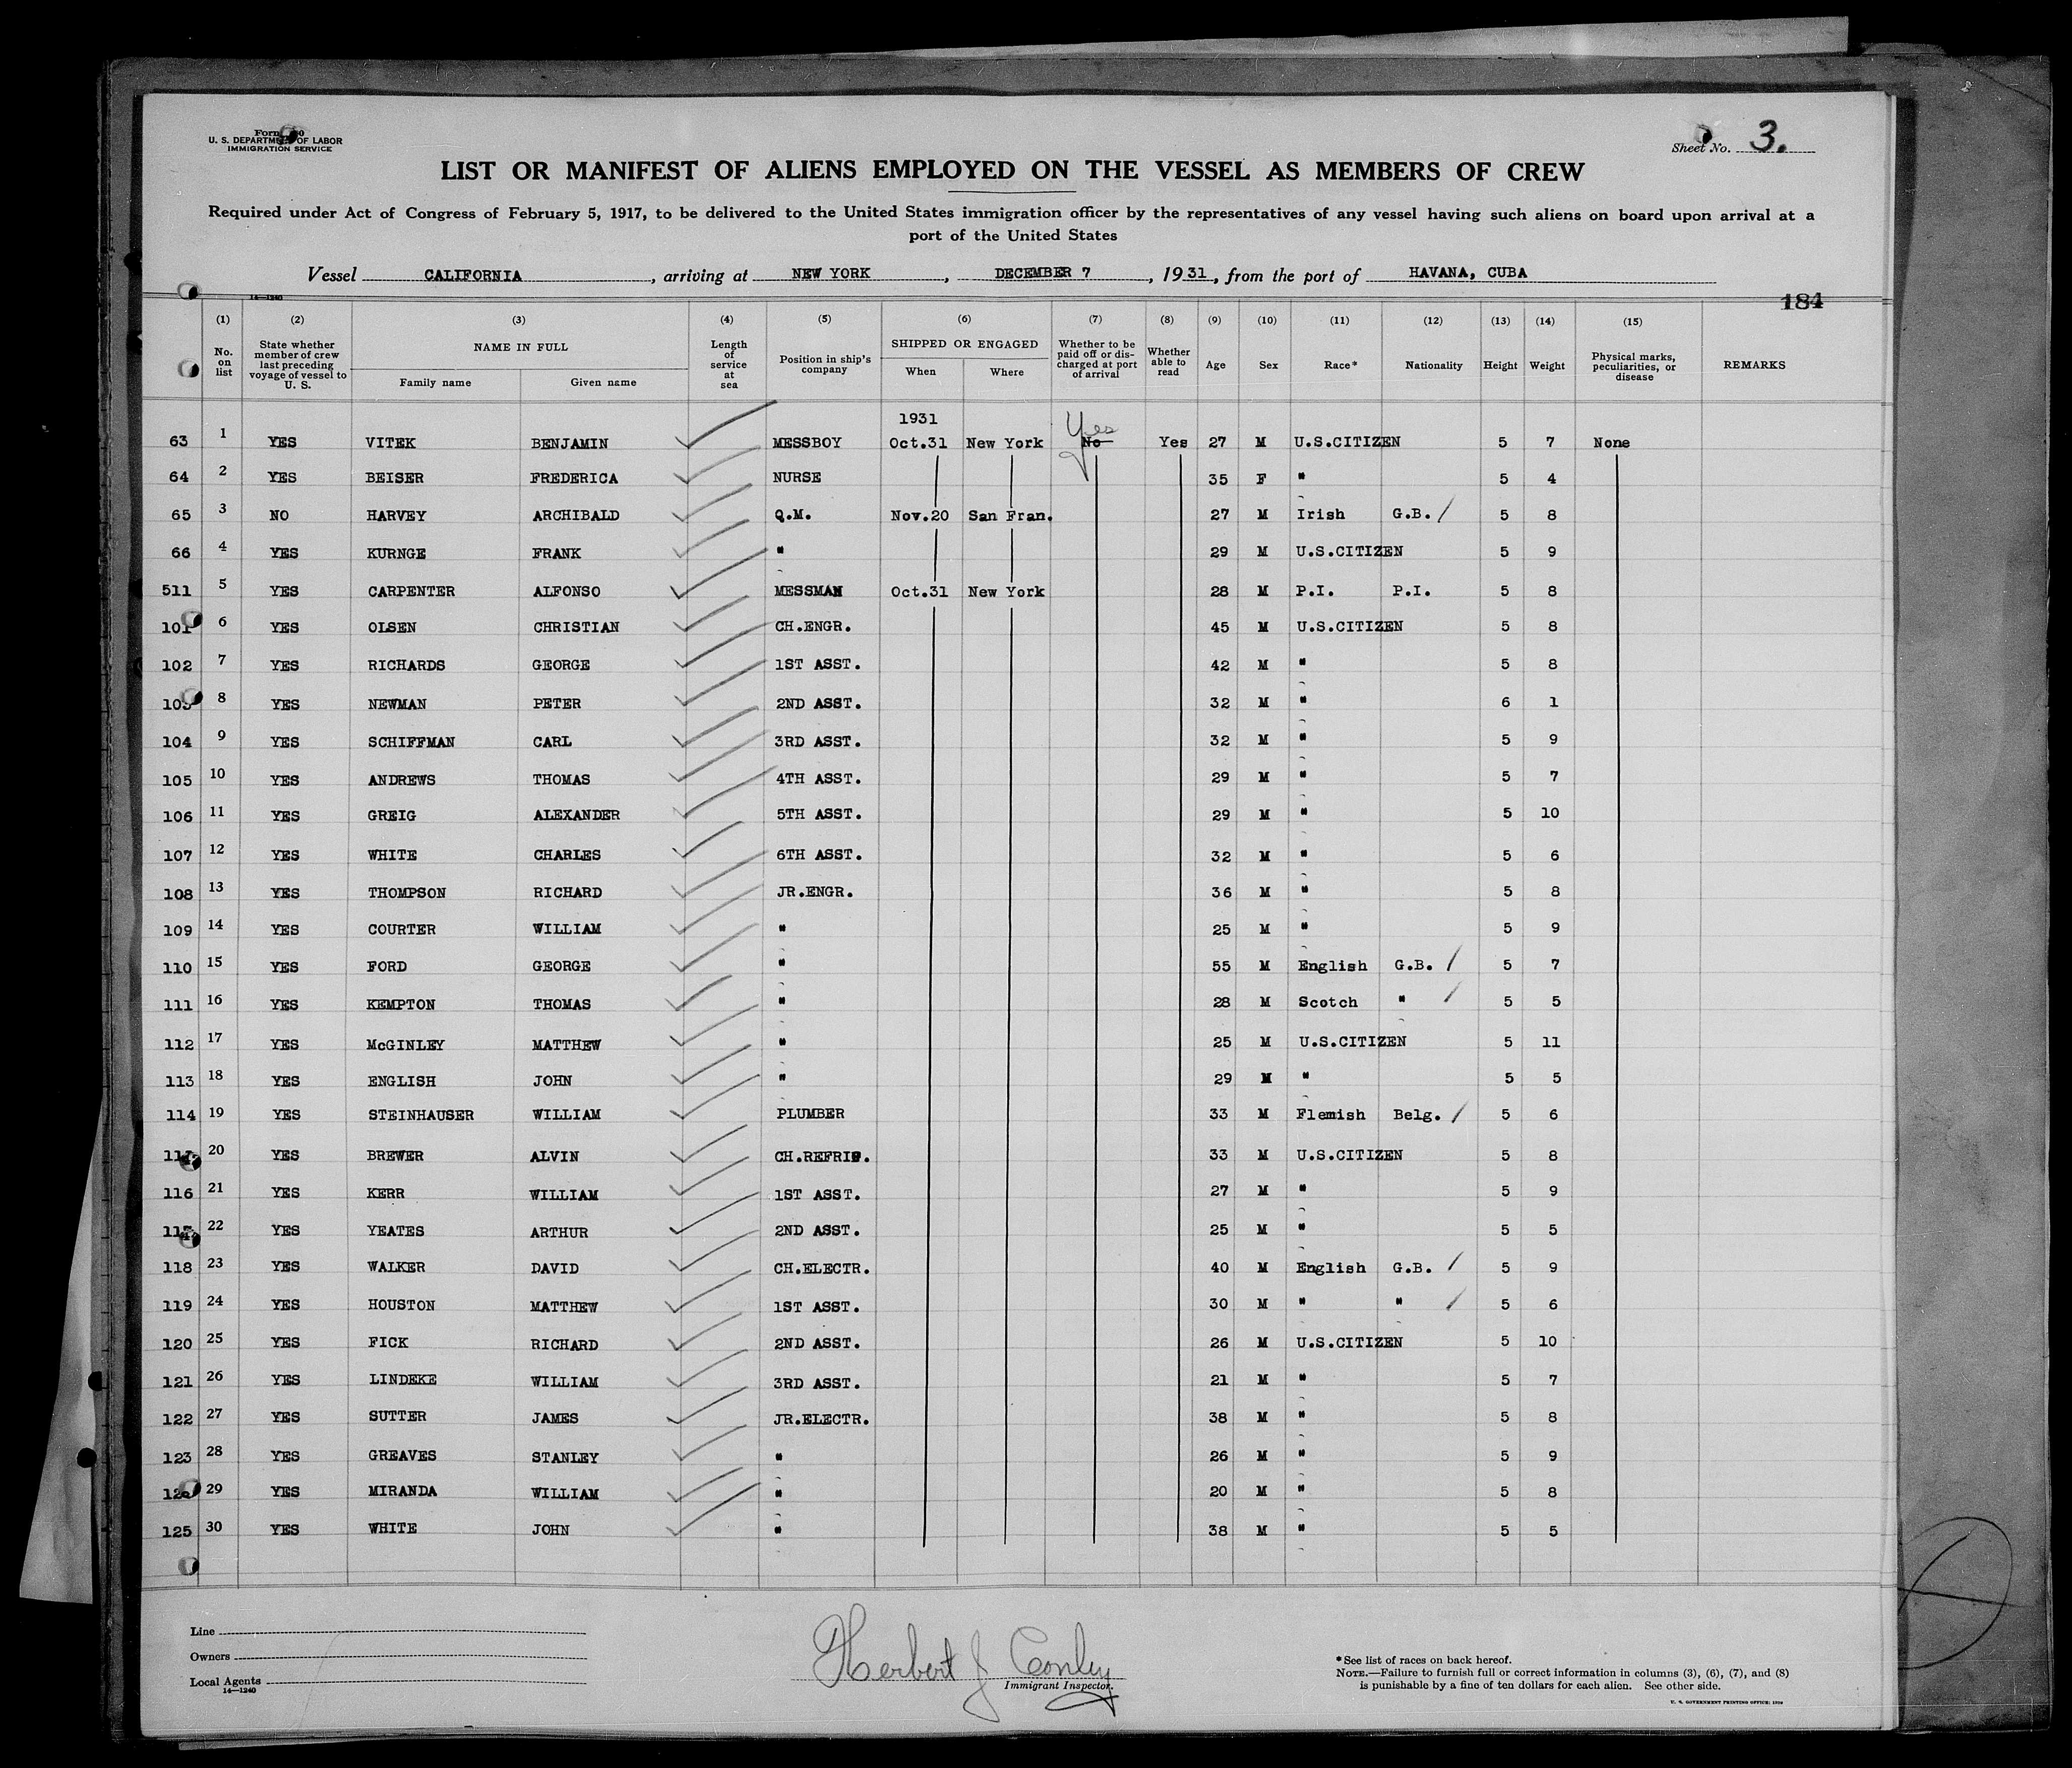 U. S. DEPARTMENT OF LABOR
IMMIGRATION SERVICE
Sheet No. 3.
LIST OR MANIFEST OF ALIENS EMPLOYED ON THE VESSEL AS MEMBERS OF CREW
Required under Act of Congress of February 5, 1917, to be delivered to the United States immigration officer by the representatives of any vessel having such aliens on board upon arrival at a
port of the United States
Vessel CALIFORNIA, arriving at NEW YORK, DECEMBER 7, 1931, from the port of HAVANA, CUBA
14—1240
184
(1) (2) (3) (4) (5) (6) (7) (8) (9) (10) (11) (12) (13) (14) (15)
No. on list State whether member of crew last preceding voyage of vessel to U. S. NAME IN FULL Family name Given name Length of service at sea Position in ship's company SHIPPED OR ENGAGED When Where Whether to be paid off or discharged at port of arrival Whether able to read Age Sex Race* Nationality Height Weight Physical marks, peculiarities, or disease REMARKS
1931 Yes
63 1 YES VITEK BENJAMIN MESSBOY Oct.31 New York No Yes 27 M U.S.CITIZEN 5 7 None
64 2 YES BEISER FREDERICA NURSE 35 F " 5 4
65 3 NO HARVEY ARCHIBALD Q.M. Nov.20 San Fran. 27 M Irish G.B. / 5 8
66 4 YES KURNGE FRANK " 29 M U.S.CITIZEN 5 9
511 5 YES CARPENTER ALFONSO MESSMAN Oct.31 New York 28 M P.I. P.I. 5 8
101 6 YES OLSEN CHRISTIAN CH.ENGR. 45 M U.S.CITIZEN 5 8
102 7 YES RICHARDS GEORGE 1ST ASST. 42 M " 5 8
103 8 YES NEWMAN PETER 2ND ASST. 32 M " 6 1
104 9 YES SCHIFFMAN CARL 3RD ASST. 32 M " 5 9
105 10 YES ANDREWS THOMAS 4TH ASST. 29 M " 5 7
106 11 YES GREIG ALEXANDER 5TH ASST. 29 M " 5 10
107 12 YES WHITE CHARLES 6TH ASST. 32 M " 5 6
108 13 YES THOMPSON RICHARD JR.ENGR. 36 M " 5 8
109 14 YES COURTER WILLIAM " 25 M " 5 9
110 15 YES FORD GEORGE " 55 M English G.B. / 5 7
111 16 YES KEMPTON THOMAS " 28 M Scotch " / 5 5
112 17 YES McGINLEY MATTHEW " 25 M U.S.CITIZEN 5 11
113 18 YES ENGLISH JOHN " 29 M " 5 5
114 19 YES STEINHAUSER WILLIAM PLUMBER 33 M Flemish Belg. / 5 6
20 YES BREWER ALVIN CH.REFRIG. 33 M U.S.CITIZEN 5 8
116 21 YES KERR WILLIAM 1ST ASST. 27 M " 5 9
117 22 YES YEATES ARTHUR 2ND ASST. 25 M " 5 5
118 23 YES WALKER DAVID CH.ELECTR. 40 M English G.B. / 5 9
119 24 YES HOUSTON MATTHEW 1ST ASST. 30 M " " / 5 6
120 25 YES FICK RICHARD 2ND ASST. 26 M U.S.CITIZEN 5 10
121 26 YES LINDEKE WILLIAM 3RD ASST. 21 M " 5 7
122 27 YES SUTTER JAMES JR.ELECTR. 38 M " 5 8
123 28 YES GREAVES STANLEY " 26 M " 5 9
29 YES MIRANDA WILLIAM " 20 M " 5 8
125 30 YES WHITE JOHN " 38 M " 5 5
Line
Owners
Local Agents
14—1240
Herbert J Conley
Immigrant Inspector.
*See list of races on back hereof.
NOTE.—Failure to furnish full or correct information in columns (3), (6), (7), and (8)
is punishable by a fine of ten dollars for each alien. See other side.
U. S. GOVERNMENT PRINTING OFFICE: